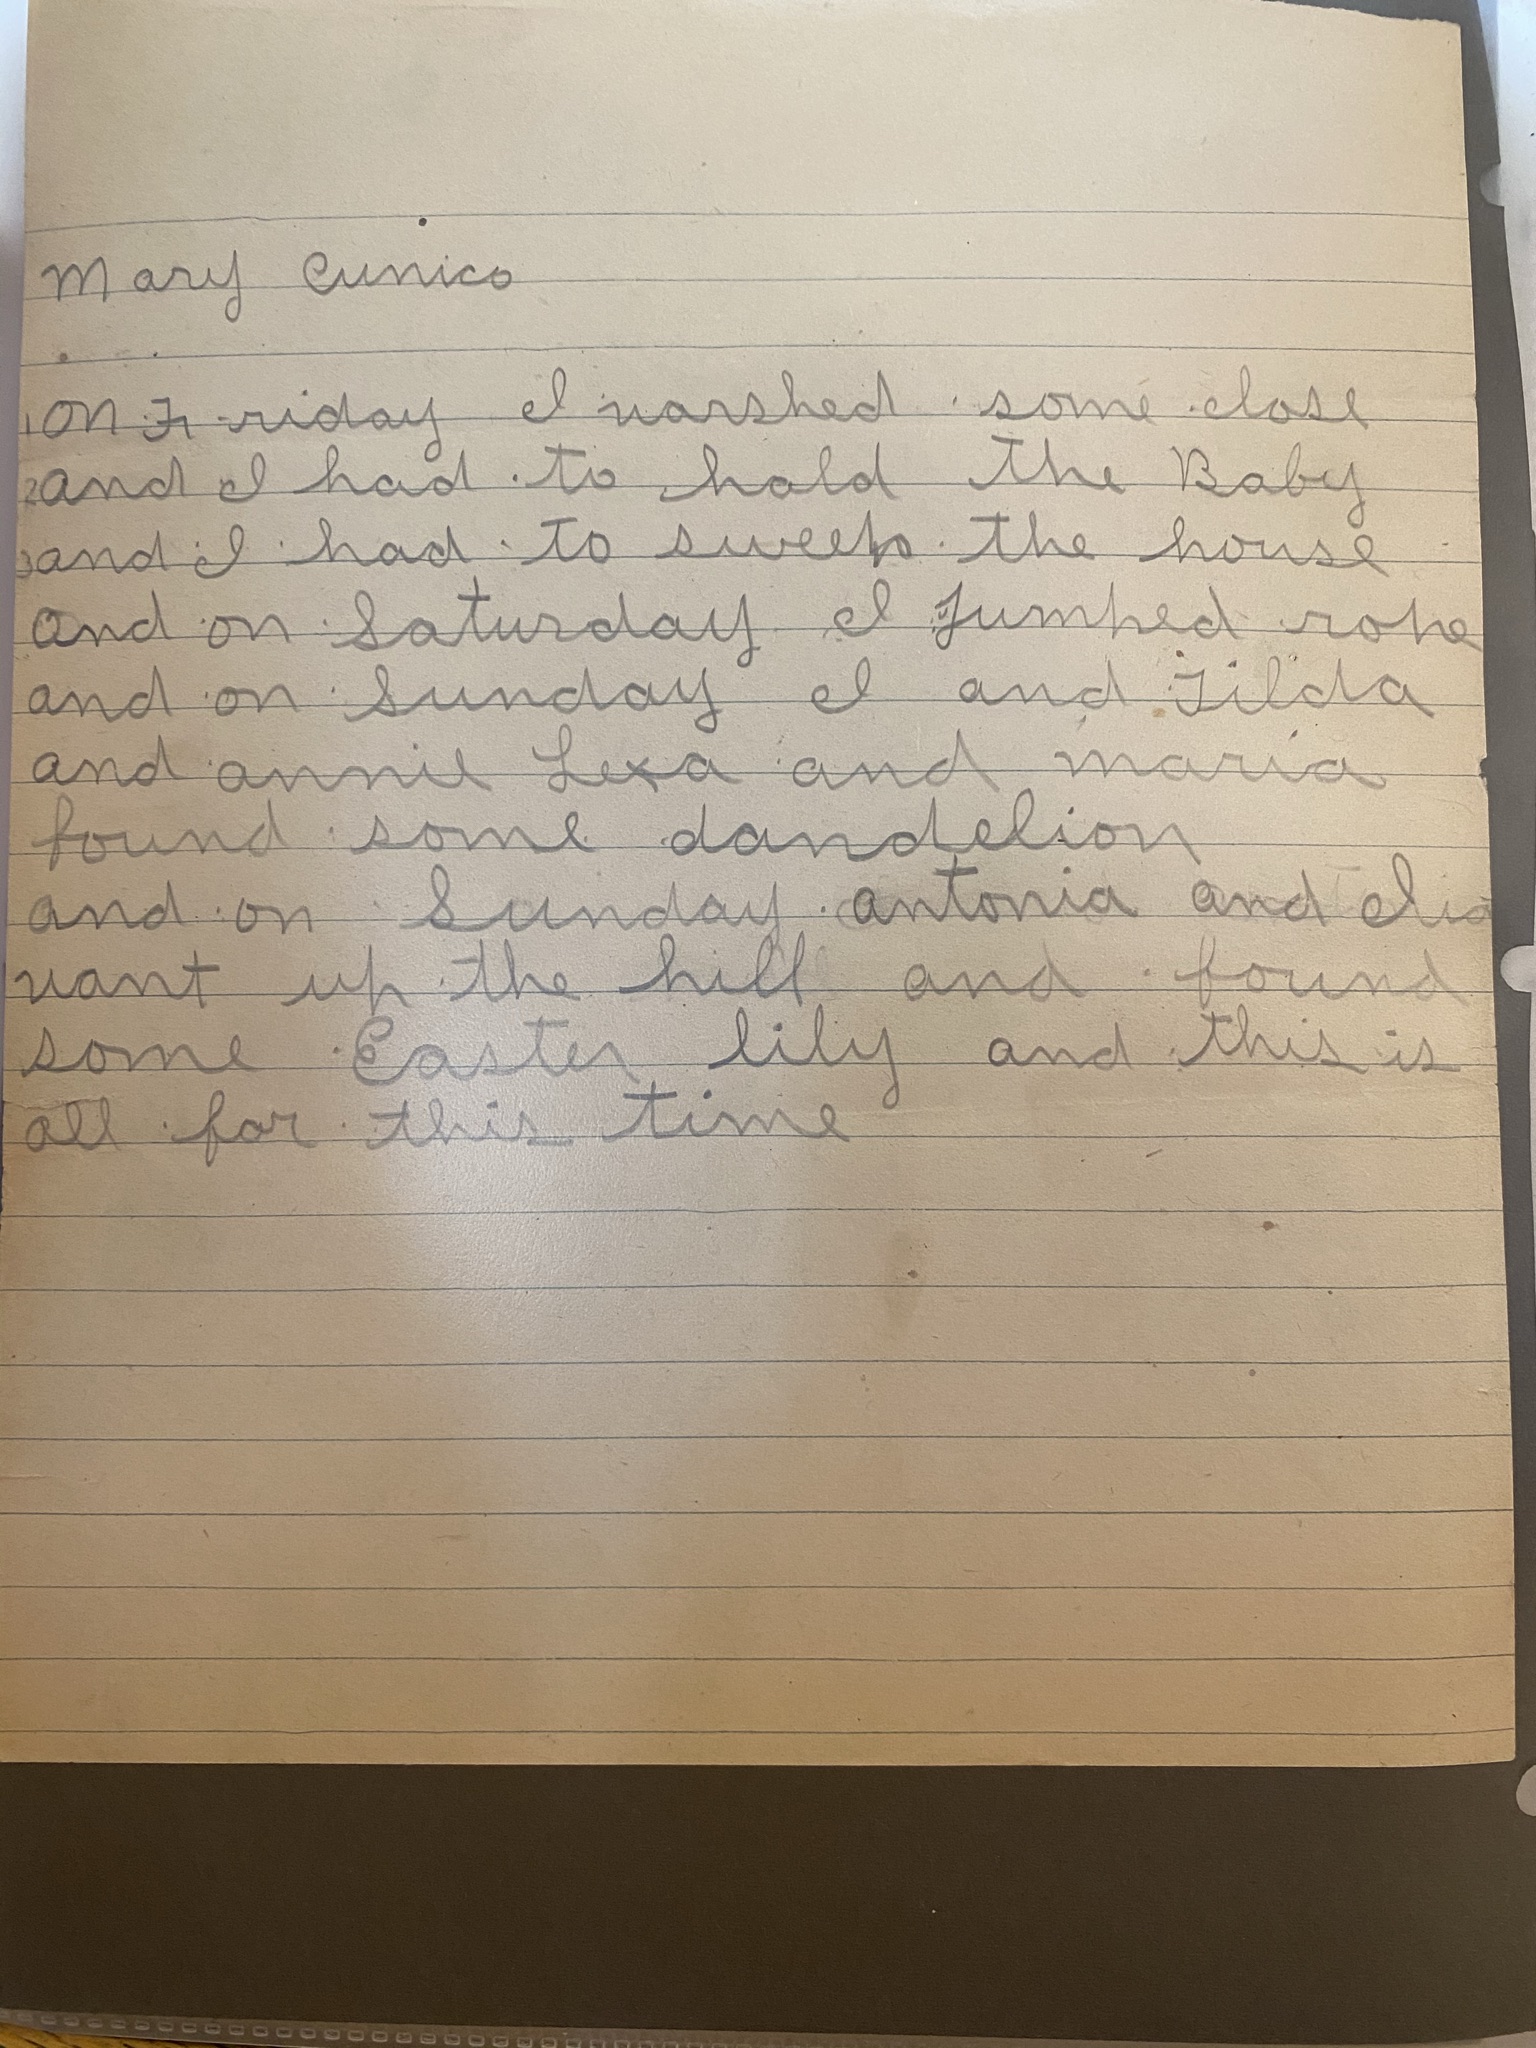 Mary Cunico
1 On Friday I warshed some close
2 and I had to hold the Baby
3 and I had to sweep the house
and on Saturday I Jumped rope
and on Sunday I and Tilda
and annie Lexa and maria
found some dandelion
and on Sunday antonia and
want up the hill and found
some Easter lily and this is
all for this time